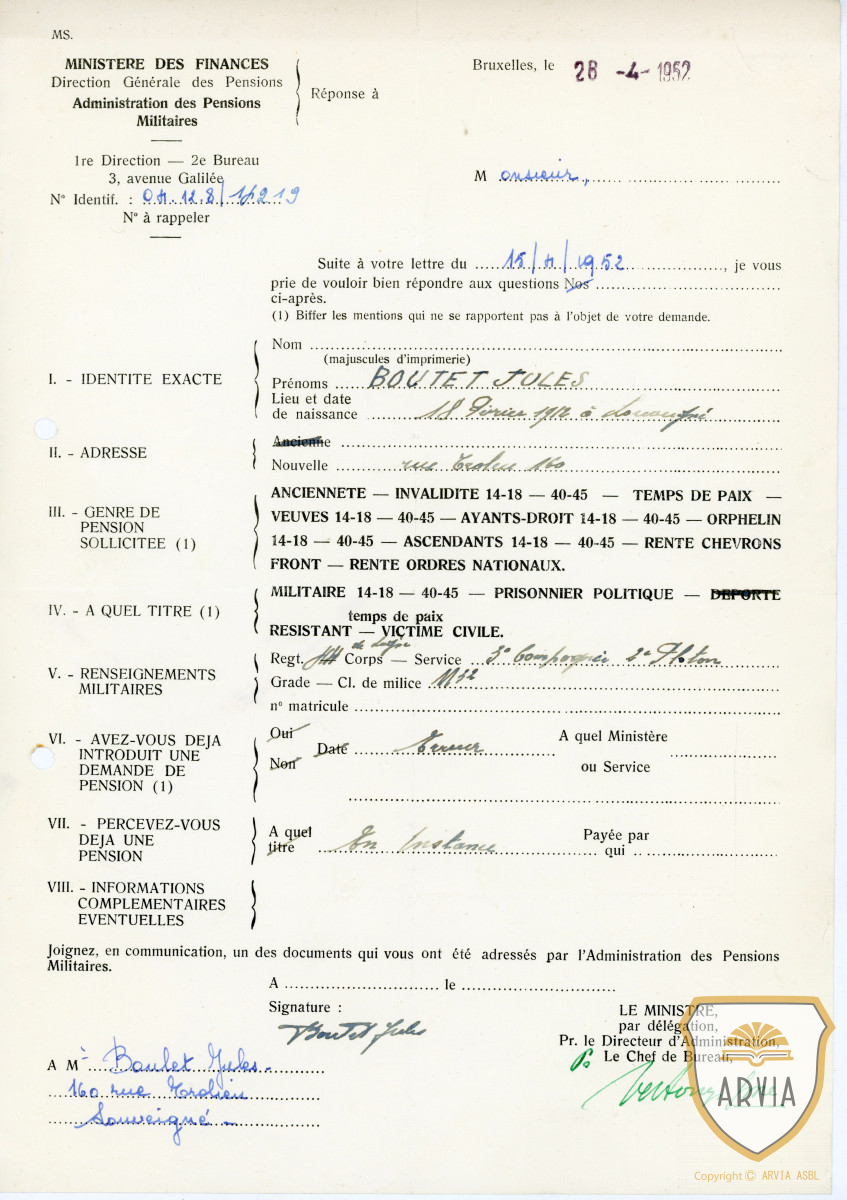 MS.
MINISTERE DES FINANCES
Direction Générale des Pensions
Administration des Pensions
Militaires
Réponse à
Bruxelles, le 28 -4- 1952
1re Direction — 2e Bureau
3, avenue Galilée
N° Identif. :
N° à rappeler
M onsieur,
Suite à votre lettre du 15/4/1952, je vous
prie de vouloir bien répondre aux questions Nos
ci-après.
(1) Biffer les mentions qui ne se rapportent pas à l'objet de votre demande.
I. - IDENTITE EXACTE
Nom
(majuscules d'imprimerie)
Prénoms BOUTET JULES
Lieu et date
de naissance 18 Février 1912 à
II. - ADRESSE
Ancienne
Nouvelle rue 160
III. - GENRE DE
PENSION
SOLLICITEE (1)
ANCIENNETE — INVALIDITE 14-18 — 40-45 — TEMPS DE PAIX —
VEUVES 14-18 — 40-45 — AYANTS-DROIT 14-18 — 40-45 — ORPHELIN
14-18 — 40-45 — ASCENDANTS 14-18 — 40-45 — RENTE CHEVRONS
FRONT — RENTE ORDRES NATIONAUX.
IV. - A QUEL TITRE (1)
MILITAIRE 14-18 — 40-45 — PRISONNIER POLITIQUE — DEPORTE
temps de paix
RESISTANT — VICTIME CIVILE.
V. - RENSEIGNEMENTS
MILITAIRES
Regt. Corps — Service 3e 2e
Grade — Cl. de milice M32
n° matricule
VI. - AVEZ-VOUS DEJA
INTRODUIT UNE
DEMANDE DE
PENSION (1)
Oui
Non
Date Erreur
A quel Ministère
ou Service
VII. - PERCEVEZ-VOUS
DEJA UNE
PENSION
A quel
titre En Instance
Payée par
qui
VIII. - INFORMATIONS
COMPLEMENTAIRES
EVENTUELLES
Joignez, en communication, un des documents qui vous ont été adressés par l'Administration des Pensions
Militaires.
A le
Signature :
Boutet Jules
LE MINISTRE,
par délégation,
Pr. le Directeur d'Administration,
Le Chef de Bureau,
A M Boulet Jules
160 rue
ARVIA
Copyright © ARVIA ASBL